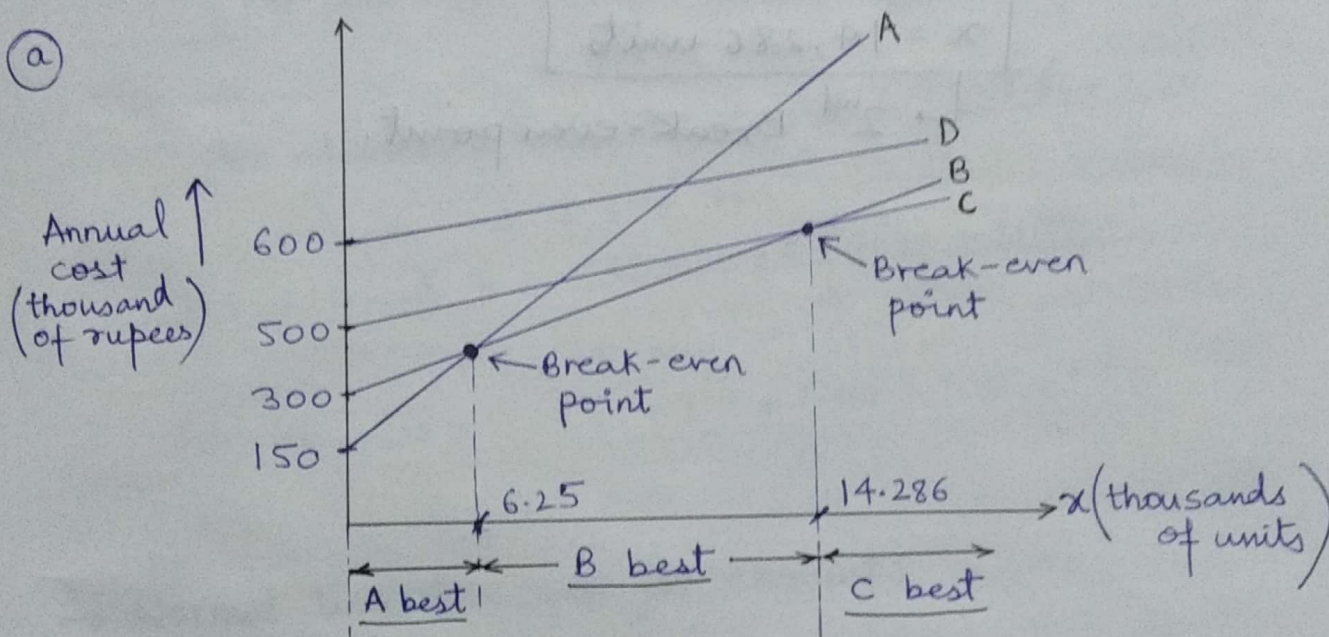 a
A
D
B
C
Annual
cost
(thousand
of rupees)
600
500
300
150
Break-even
point
Break-even
point
6.25
14.286
x (thousands
of units)
A best
B best
C best